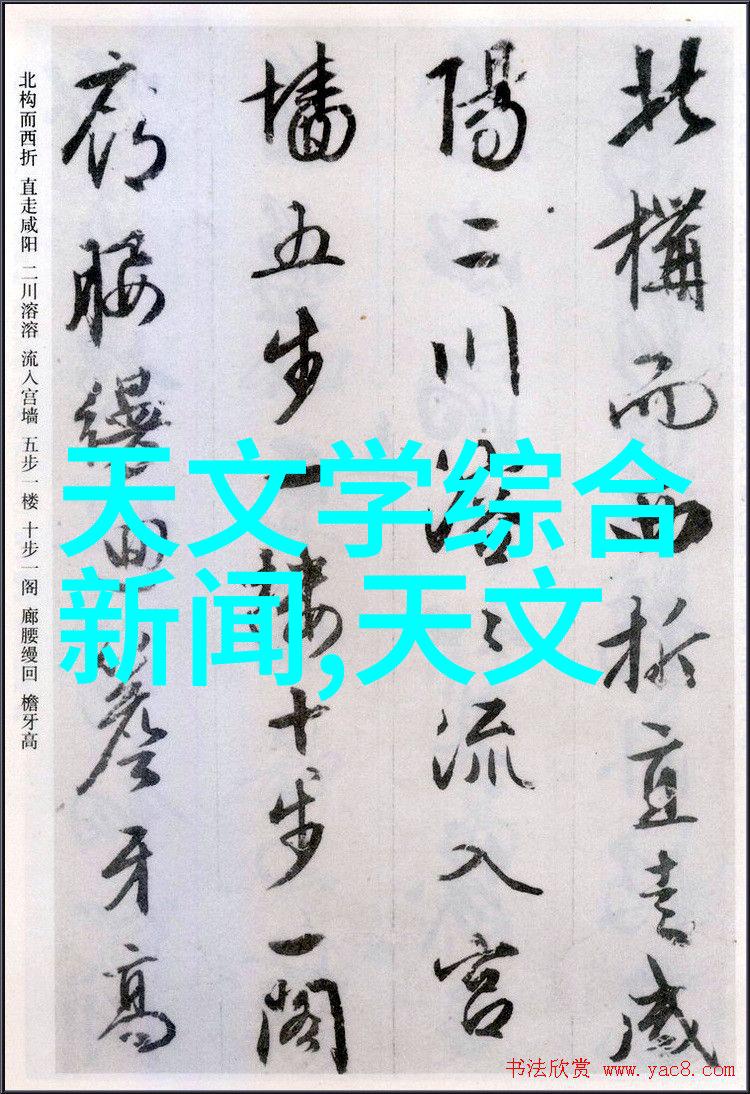 北構而西折直走咸
陽二川溶〻流入宮
墻五步一楼十步一閣
廊腰縵迴簷牙高
北构而西折 直走咸阳 二川溶溶 流入宫墙 五步一楼 十步一阁 廊腰缦回 檐牙高
天文学综合
新闻,天文
书法欣赏 www.yac8.com